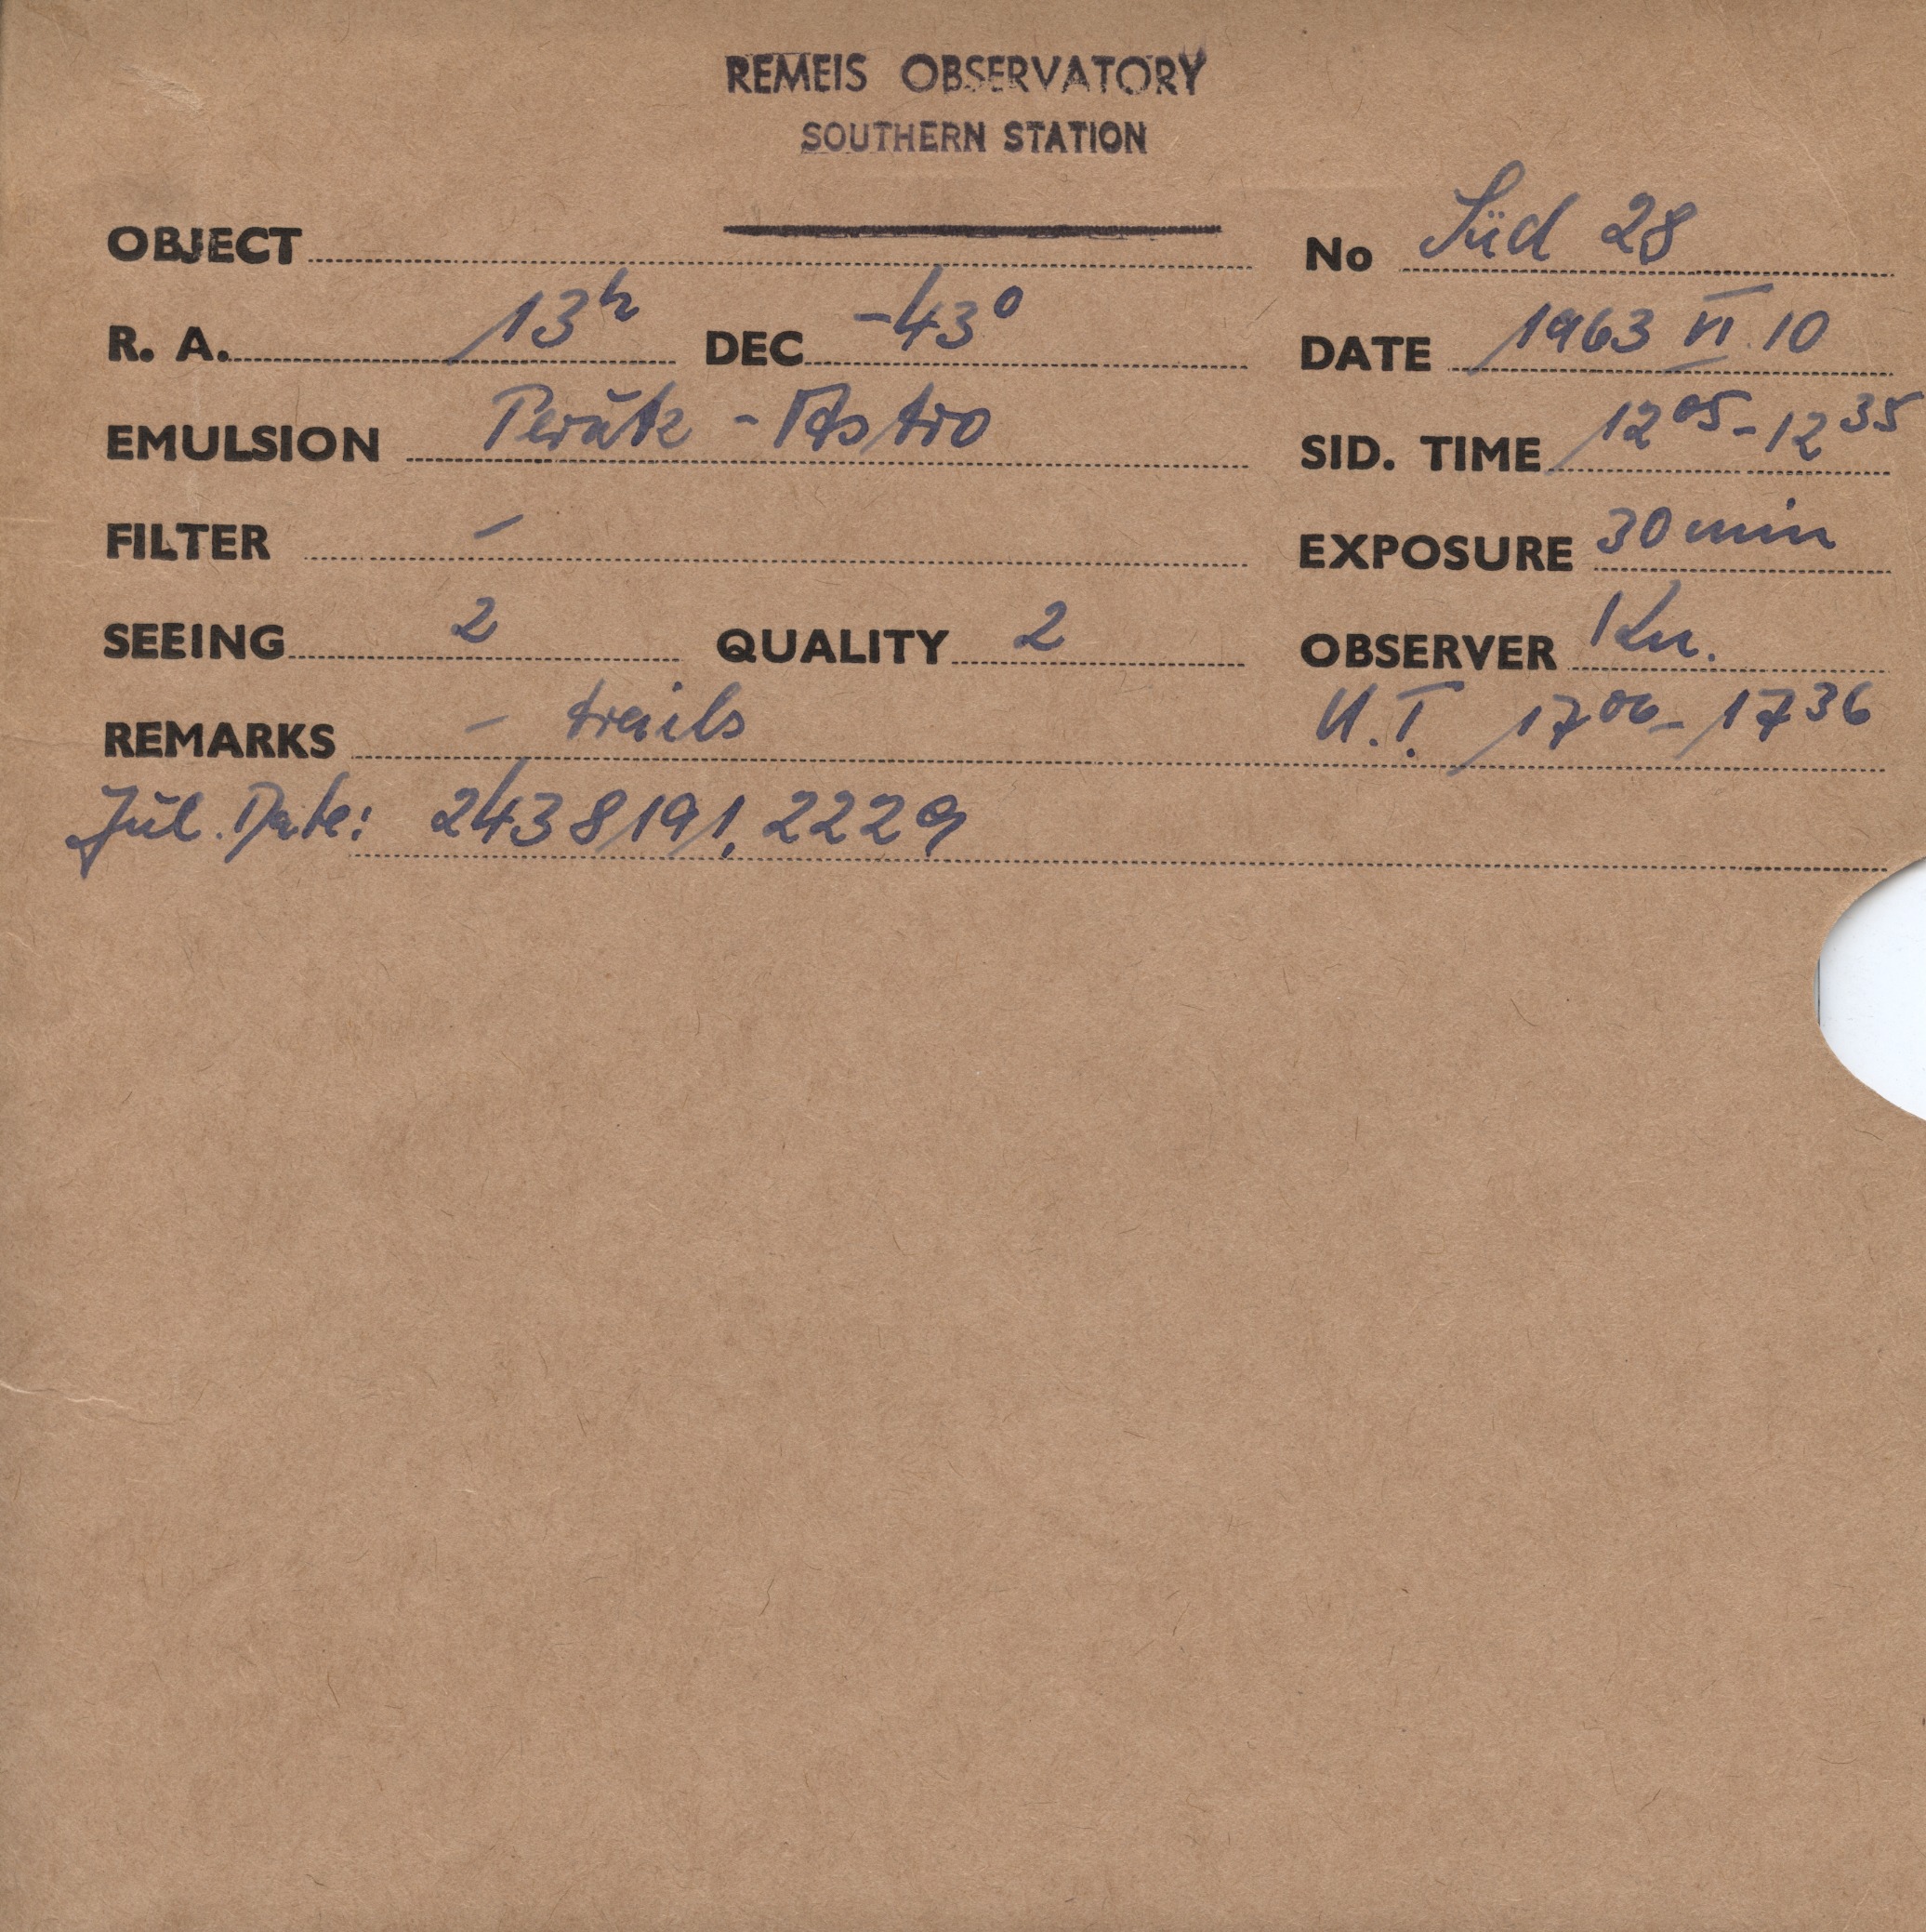 REMEIS OBSERVATORY
SOUTHERN STATION
OBJECT No Süd 28
R. A. 13h DEC -43° DATE 1963 VI 10
EMULSION Perutz - Astro SID. TIME 12 05 - 12 35
FILTER - EXPOSURE 30 min
SEEING 2 QUALITY 2 OBSERVER Kn.
REMARKS - trails U.T. 17 06 - 17 36
Jul. Date: 2438191,2229